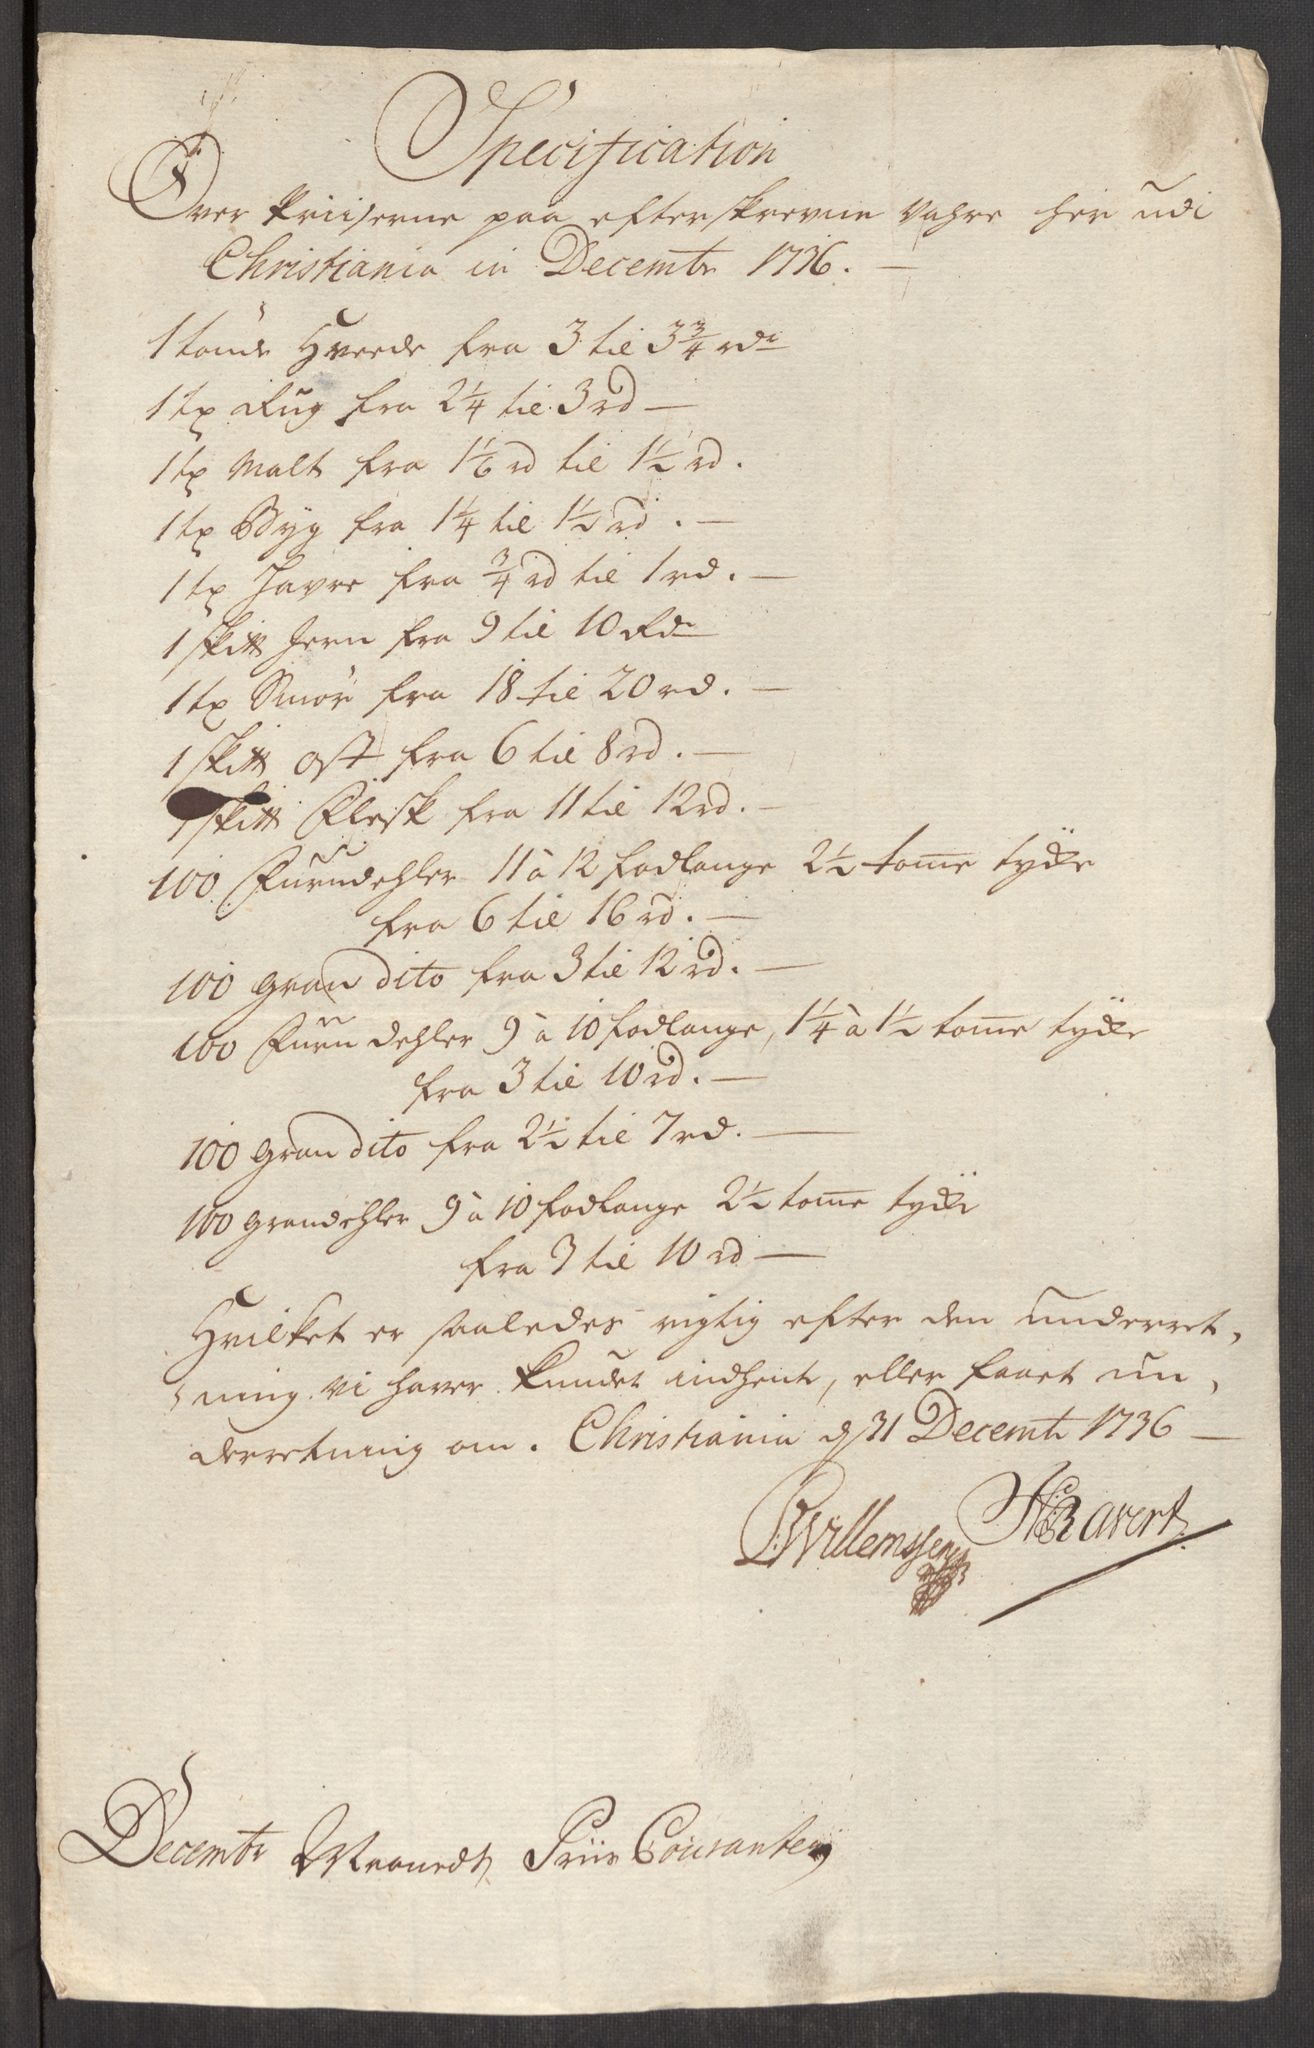 Specification
Over Priiserne paa efterskrevne Vahre her udi
Christiania in Decembr 1736.
1 tønde Hveede fra 3 til 3 3/4 rdr
1 tp Rug fra 2 1/4 til 3 rd
1 tp Malt fra 1 1/6 rd til 1 1/2 rd.
1 tp Byg fra 1 1/4 til 1 1/2 rd.
1 tp Havre fra 3/4 rd til 1 rd.
1 skitt Jern fra 9 til 10 Rdr
1 tp Smør fra 18 til 20 rd.
1 skitt ost fra 6 til 8 rd.
1 skitt Flesk fra 11 til 12 rd.
100 Furudehler 11 à 12 fodlange 2 1/2 tome tycke
fra 6 til 16 rd.
100 gran dito fra 3 til 12 rd.
100 Furu dehler 9 à 10 fodlange, 1 1/4 à 1 1/2 tome tycke
fra 3 til 10 rd.
100 gran dito fra 2 1/2 til 7 rd.
100 grandehler 9 à 10 fodlange 2 1/2 tome tycke
fra 3 til 10 rd
Hvilket er saaledes rigtig efter den underret,
ning vi haver kundet indhente, eller faaet un,
derretning om. Christiania d 31 Decembr 1736
Willemssen Ravert
Decembr Maanedt Priis Couranter